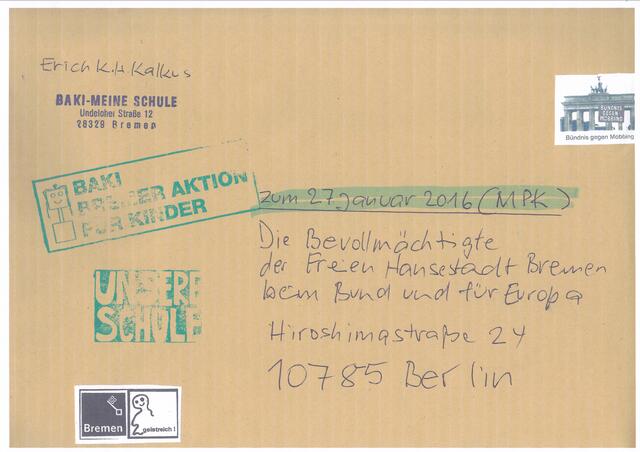 Erich K.H. Kalkus
BAKI-MEINE SCHULE
Undeloher Straße 12
28329 Bremen
BÜNDNIS
GEGEN
MOBBING
Bündnis gegen Mobbing
BAKI
BREMER AKTION
FÜR KINDER
zum 27. Januar 2016 (MPK)
Die Bevollmächtigte
der Freien Hansestadt Bremen
beim Bund und für Europa
Hiroshimastraße 24
10785 Berlin
UNSERE
SCHULE
Bremen
geistreich!